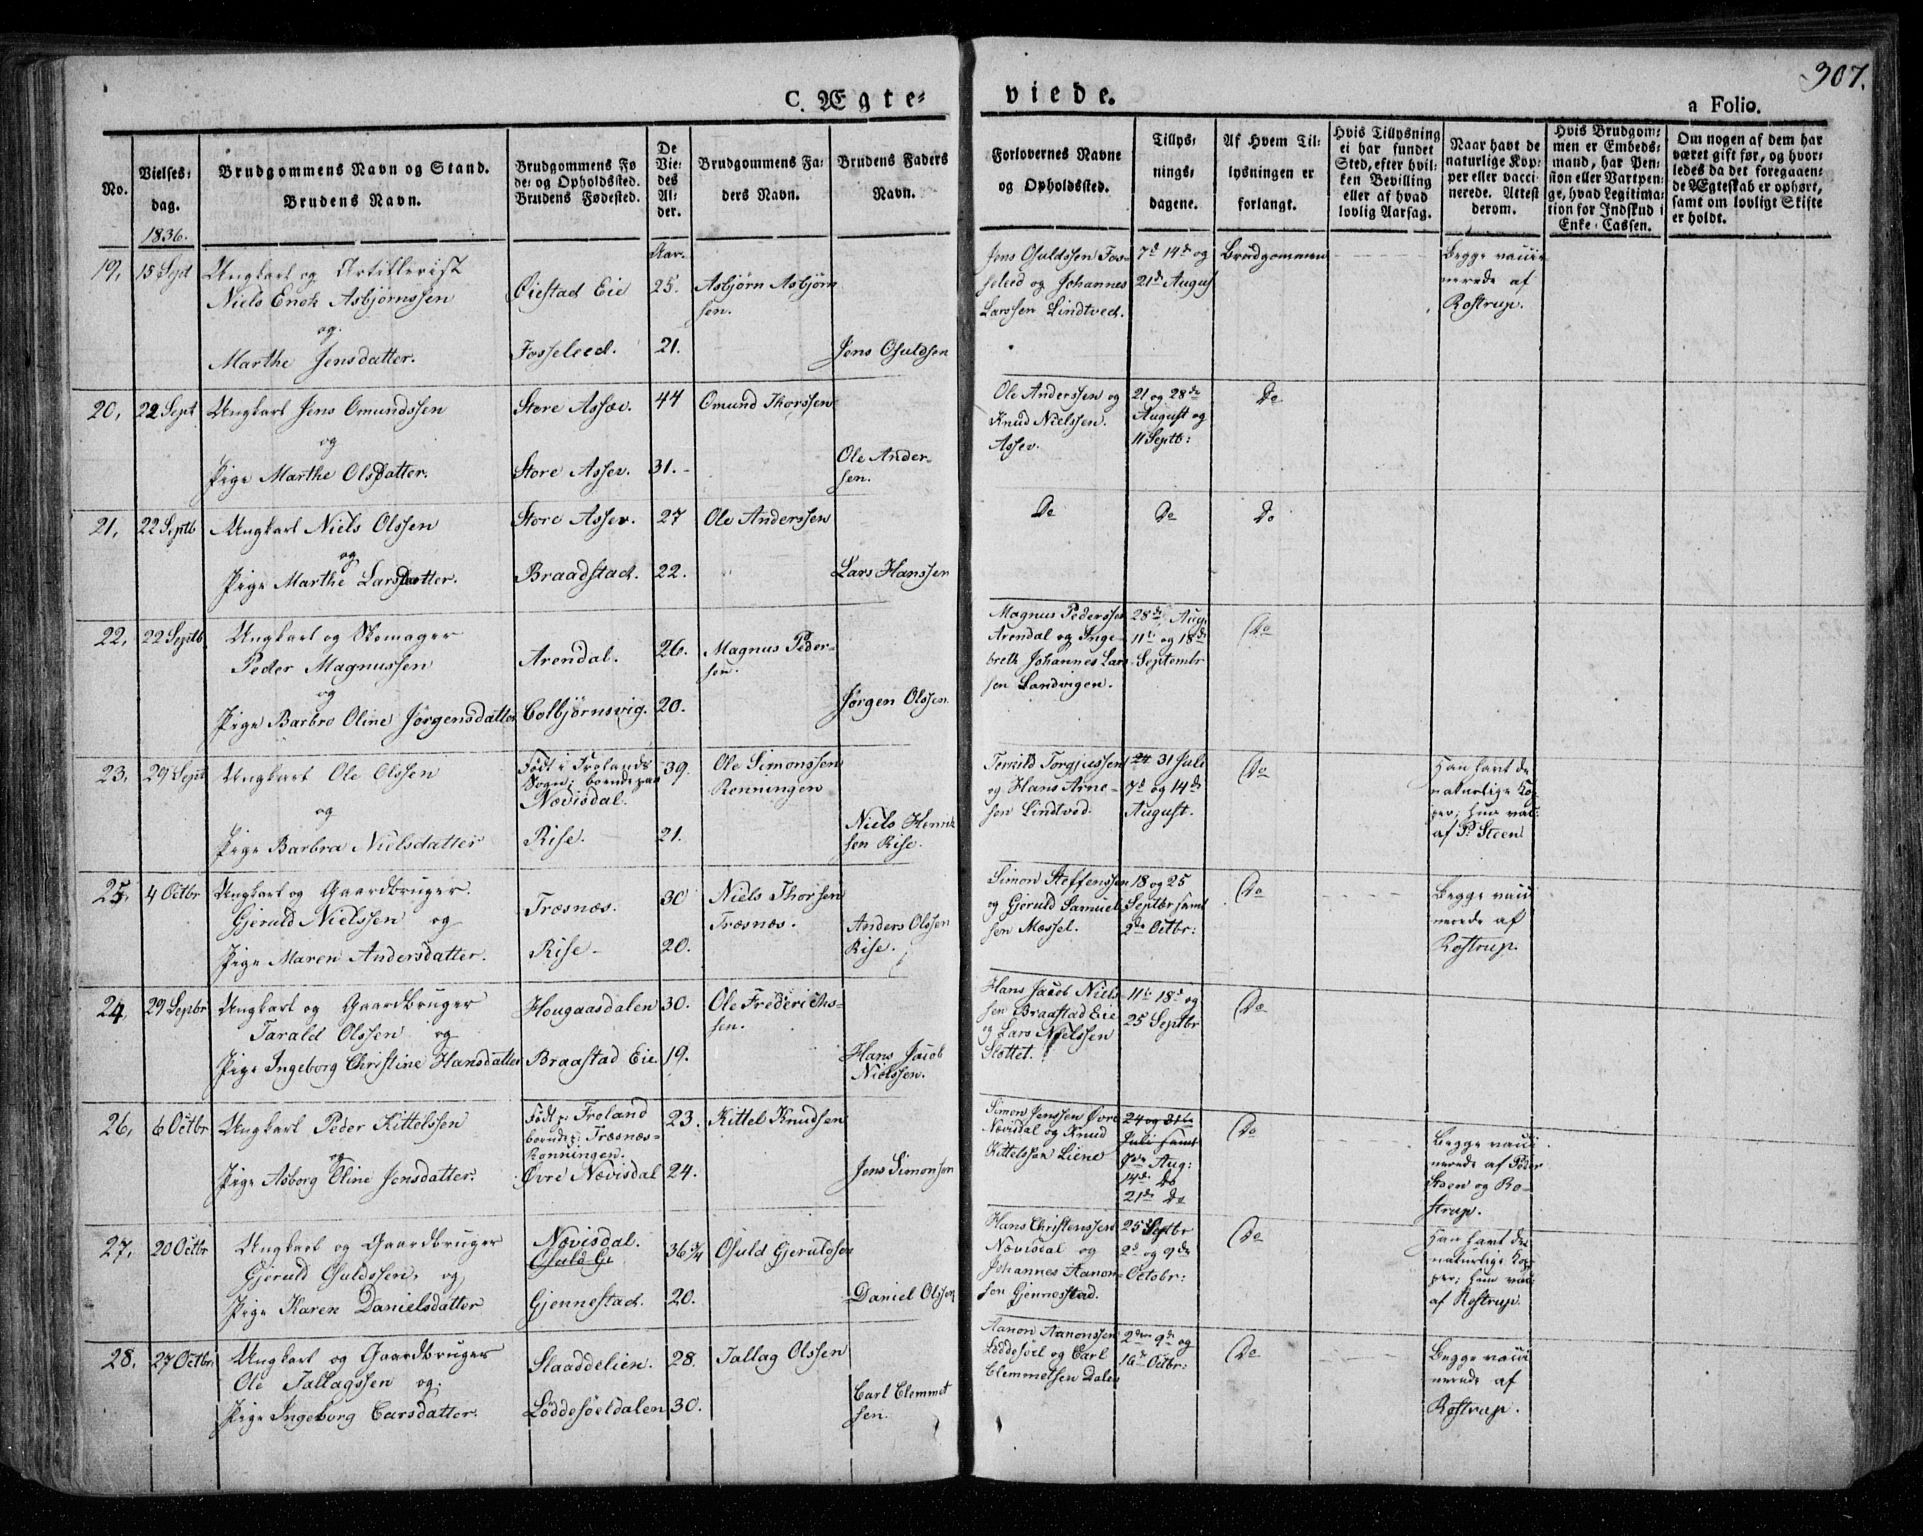 C. Ægte-
viede.
307.
a Folio.
No.
Vielses-
dag.
1836.
Brudgommens Navn og Stand.
Brudens Navn.
Brudgommens Fø
de- og Opholdssted.
Brudens Fødested.
De
Vie-
des
Al-
der.
Brudgommens Fa-
ders Navn.
Brudens Faders
Navn.
Forlovernes Navne
og Opholdssted.
Tillys-
nings-
dagene.
Af Hvem Til-
lysningen er
forlangt.
Hvis Tillysning
ei har fundet
Sted, efter hvil-
ken Bevilling
eller af hvad
lovlig Aarsag.
Naar havt de
naturlige Kop-
per eller vacci-
nerede. Attest
derom.
Hvis Brudgom-
men er Embeds-
mand, har Pen-
sion eller Vartpen-
ge, hvad Legitima-
tion for Indskud i
Enke-Cassen.
Om nogen af dem har
været gift før, og hvor-
ledes da det foregaaen-
de Ægteskab er ophørt,
samt om lovligt Skifte
er holdt.
Aar.
19, 15 Sept Ungkarl og Artillerist
Niels Enok Asbjørnssen
og
Marthe Jensdatter.
Øiestad Eie 25. Asbjørn Asbjørn
sen.
Fosseleed. 21. Jens Osuldsen
Jens Osuldssen Fos-
seleed og Johannes
Larssen Lindtved.
7d 14de og
21de August
Brudgommen
Begge vacci
nerede af
Rostrup.
20, 22 Sept Ungkarl Jens Omundssen
og
Pige Marthe Olsdatter.
Store Assev. 44 Omund Thorssen
Store Assev. 31. Ole Ander-
sen.
Ole Anderssen og
Knud Nielssen.
Assev.
21 og 28de
August og
11 Septb:
Do
21, 22 Septb Ungkarl Niels Olssen
og
Pige Marthe Larsdatter.
Store Assev. 27 Ole Anderssen
Braadstad. 22. Lars Hanssen
Do Do Do
22, 22 Septb. Ungkarl og Skomager
Peder Magnussen
og
Pige Barbro Oline Jørgensdatter
Arendal. 26. Magnus Peder-
sen.
Colbjørnsvig. 20. Jørgen Olssen
Magnus Pederssen
Arendal og Inge-
breth Johannes Lars
sen Sandvigen.
28de Aug.
11te og 18de
Septembr
Do
23, 29 Sept Ungkarl Ole Olssen
og
Pige Barbra Nielsdatter
Født i Frolands
Sogn; boende paa
Nævisdal.
39. Ole Simonssen
Rønningen
Rise. 21. Niels Henrik
sen Rise.
Terjuld Torgjussen
og Hans Arne-
sen Lindtved.
24 31 Juli
7d og 14de
August.
Do
Han havt de
naturlige Kop
per; hun vac:
af P. Steen
25, 4 Octbr Ungkarl og Gaardbruger.
Gjeruld Nielssen og
Pige Maren Andersdatter.
Træsnæs. 30 Niels Thorsen
Træsnæs.
Rise 20. Anders Olssen
Rise.
Simon Steffenssen
og Gjeruld Samuel-
sen Mæssel.
18 og 25
Septbr samt
2de Octbr:
Do
Begge vacci
nerede af
Rostrup.
24, 29 Sepbr Ungkarl og Gaardbruger
Tarald Olssen og
Pige Ingeborg Christine Hansdatter
Hougaasdalen 30. Ole Frederichs-
sen.
Braastad Eie 19. Hans Jacob
Nielssen.
Hans Jacob Niels-
sen Braastad Eie
og Lars Nielssen
Slottet.
11te 18de og
25 Septbr
Do
26, 6 Octbr Ungkarl Peder Kittelssen
og
Pige Asborg Oline Jensdatter.
Født p: Froland
boende p: Træsnæs-
Rønningen.
23. Kittel Knudsen
Øvre Nævisdal 24. Jens Simonsen
Simon Jenssen Øvre
Nævisdal og Knud
Kittelssen Liene
24 og 31te
Juli samt
9de Aug:
14de Do
21de Do
Do
Begge vacci
nerede af Peder
Steen og Ro-
strup.
27, 20 Octbr Ungkarl og Gaardbruger
Gjeruld Osuldssen, og
Pige Karen Danielsdatter
Nævisdal.
Osuld G.
36 3/4 Osuld Gjeruldsen
Gjennestad. 20. Daniel Olssen
Hans Christenssen
Nævisdal og
Johannes Aanon-
sen Gjennestad.
25 Septbr
2d og 9de
Octobr:
Do
Han havt de
naturlige Kop
per; hun vac:
af Rostrup.
28. 27 Octbr. Ungkarl og Gaardbruger
Ole Tallagssen og
Pige Ingeborg Carsdatter.
Staaddelien. 28. Tallag Olssen
Løddesøeldalen 30. Carl Clemmet
sen.
Aanon Aanonssen
Løddesøel og Carl
Clemmetsen Dalen
2den 9de og
16de Octbr:
Do
Begge vacci
nerede af
Rostrup.